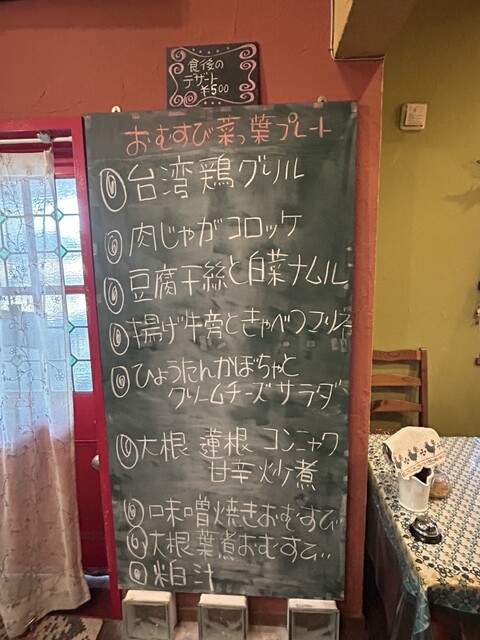 食後の
デザート
¥500
おむすび菜っ葉プレート
台湾鶏グリル
肉じゃがコロッケ
豆腐干絲と白菜ナムル
揚げ牛蒡ときゃべつマリネ
ひょうたんかぼちゃと
クリームチーズサラダ
大根 蓮根 コンニャク
甘辛炒ケ煮
味噌焼きおむすび
大根葉煮おむすび
粕汁